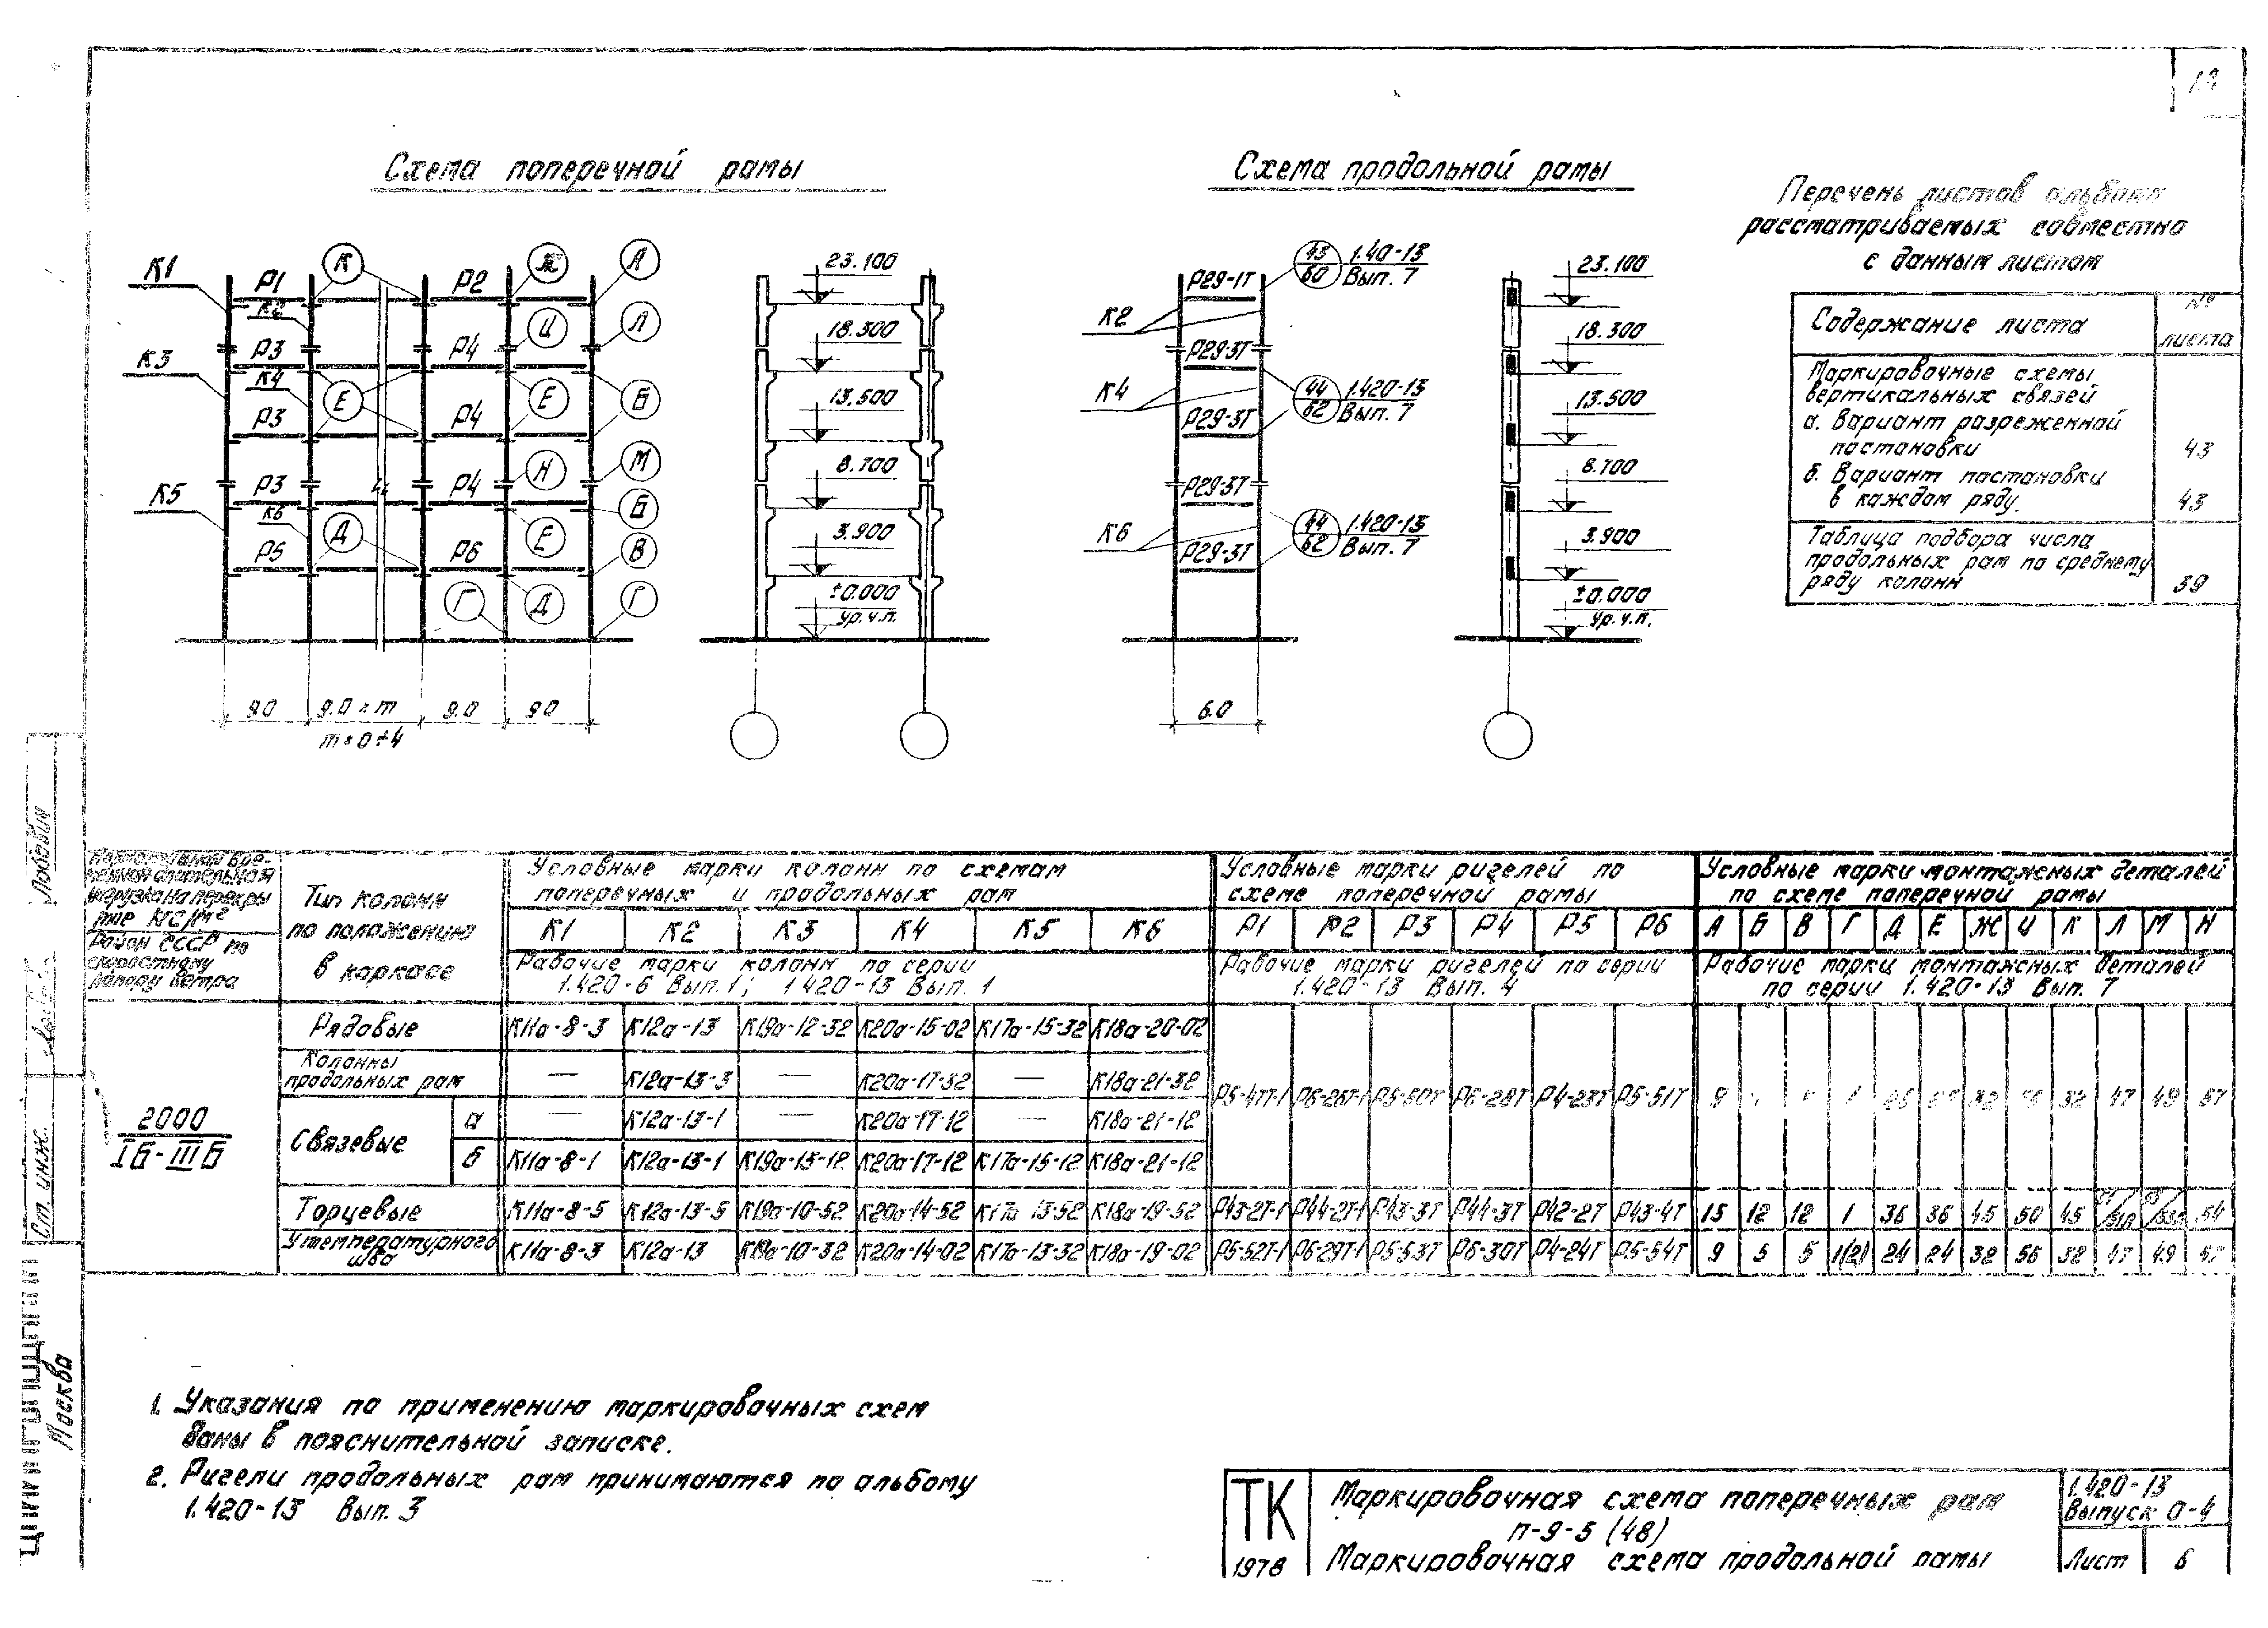 Схема поперечной рамы
К1
К3
К5
Р1
К2
Р3
К4
Р3
Р3
К6
Р5
Р2
Р4
Р4
Р4
Р6
К
Ж
А
И
Л
Е
Е
Б
Н
М
Д
Е
Б
В
Г
Д
Г
9.0
9.0 × m
9.0
9.0
m = 0 ÷ 4
23.100
18.300
13.500
8.700
3.900
±0.000
ур.ч.п.
Схема продольной рамы
К2
К4
К6
Р29-1Т
Р29-3Т
Р29-3Т
Р29-3Т
Р29-3Т
43 1.40-13
60 Вып. 7
44 1.420-13
62 Вып. 7
44 1.420-13
62 Вып. 7
6.0
23.100
18.300
13.500
8.700
3.900
±0.000
ур.ч.п.
Перечень листов альбома
рассматриваемых совместно
с данным листом
Содержание листа № листа
Маркировочные схемы
вертикальных связей
а. Вариант разреженной
постановки 43
б. Вариант постановки
в каждом ряду. 43
Таблица подбора числа
продольных рам по среднему
ряду колонн 39
Нормативная вре-
менная длительная
нагрузка на перекры
тие кгс/м²
Район СССР по
скоростному
напору ветра
Тип колонн
по положению
в каркасе
Условные марки колонн по схемам
поперечных и продольных рам
К1 К2 К3 К4 К5 К6
Рабочие марки колонн по серии
1.420-6 Вып. 1; 1.420-13 Вып. 1
Условные марки ригелей по
схеме поперечной рамы
Р1 Р2 Р3 Р4 Р5 Р6
Рабочие марки ригелей по серии
1.420-13 Вып. 4
Условные марки монтажных деталей
по схеме поперечной рамы
А Б В Г Д Е Ж И К Л М Н
Рабочие марки монтажных деталей
по серии 1.420-13 Вып. 7
2000
IБ-IIIБ
Рядовые К11а-8-3 К12а-13 К19а-12-32 К20а-15-02 К17а-15-32 К18а-20-02
Колонны
продольных рам — К12а-13-3 — К20а-17-32 — К18а-21-32
Р5-47Т-1 Р6-26Т-1 Р5-50Т Р6-28Т Р4-23Т Р5-51Т 9 1 32 56 32 47 49 57
Связевые
а — К12а-13-1 — К20а-17-12 — К18а-21-12
б К11а-8-1 К12а-13-1 К19а-13-12 К20а-17-12 К17а-15-12 К18а-21-12
Торцевые К11а-8-5 К12а-13-5 К19а-10-52 К20а-14-52 К17а 13-52 К18а-19-52 Р43-2Т-1 Р44-2Т-1 Р43-3Т Р44-3Т Р42-2Т Р43-4Т 15 12 12 1 36 36 45 50 45 54
У температурного
шва К11а-8-3 К12а-13 К19а-10-32 К20а-14-02 К17а-13-32 К18а-19-02 Р5-52Т-1 Р6-29Т-1 Р5-53Т Р6-30Т Р4-24Т Р5-54Т 9 5 5 1(2) 24 24 32 56 32 47 49 57
1. Указания по применению маркировочных схем
даны в пояснительной записке.
2. Ригели продольных рам принимаются по альбому
1.420-13 Вып. 3
ТК
1978
Маркировочная схема поперечных рам
п-9-5 (48)
Маркировочная схема продольной рамы
1.420-13
Выпуск 0-4
Лист 6
Ст. инж.
Москва